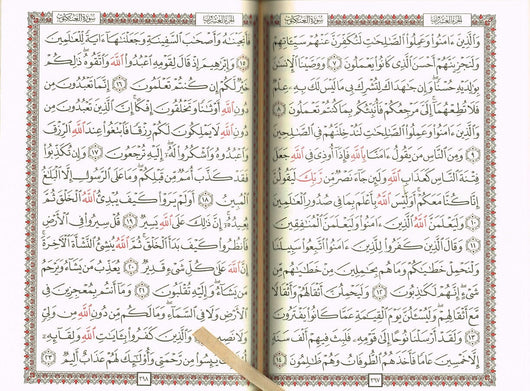 الجزء العشرون
سورة العنكبوت
وَٱلَّذِينَ ءَامَنُوا۟ وَعَمِلُوا۟ ٱلصَّٰلِحَٰتِ لَنُكَفِّرَنَّ عَنْهُمْ سَيِّـَٔاتِهِمْ
وَلَنَجْزِيَنَّهُمْ أَحْسَنَ ٱلَّذِى كَانُوا۟ يَعْمَلُونَ ٧ وَوَصَّيْنَا ٱلْإِنسَٰنَ
بِوَٰلِدَيْهِ حُسْنًا ۖ وَإِن جَٰهَدَاكَ لِتُشْرِكَ بِى مَا لَيْسَ لَكَ بِهِۦ عِلْمٌ
فَلَا تُطِعْهُمَآ ۚ إِلَىَّ مَرْجِعُكُمْ فَأُنَبِّئُكُم بِمَا كُنتُمْ تَعْمَلُونَ ٨
وَٱلَّذِينَ ءَامَنُوا۟ وَعَمِلُوا۟ ٱلصَّٰلِحَٰتِ لَنُدْخِلَنَّهُمْ فِى ٱلصَّٰلِحِينَ
٩ وَمِنَ ٱلنَّاسِ مَن يَقُولُ ءَامَنَّا بِٱللَّهِ فَإِذَآ أُوذِىَ فِى ٱللَّهِ جَعَلَ
فِتْنَةَ ٱلنَّاسِ كَعَذَابِ ٱللَّهِ وَلَئِن جَآءَ نَصْرٌ مِّن رَّبِّكَ لَيَقُولُنَّ
إِنَّا كُنَّا مَعَكُمْ ۚ أَوَلَيْسَ ٱللَّهُ بِأَعْلَمَ بِمَا فِى صُدُورِ ٱلْعَٰلَمِينَ
١٠ وَلَيَعْلَمَنَّ ٱللَّهُ ٱلَّذِينَ ءَامَنُوا۟ وَلَيَعْلَمَنَّ ٱلْمُنَٰفِقِينَ
١١ وَقَالَ ٱلَّذِينَ كَفَرُوا۟ لِلَّذِينَ ءَامَنُوا۟ ٱتَّبِعُوا۟ سَبِيلَنَا
وَلْنَحْمِلْ خَطَٰيَٰكُمْ وَمَا هُم بِحَٰمِلِينَ مِنْ خَطَٰيَٰهُم مِّن
شَىْءٍ ۖ إِنَّهُمْ لَكَٰذِبُونَ ١٢ وَلَيَحْمِلُنَّ أَثْقَالَهُمْ وَأَثْقَالًا
مَّعَ أَثْقَالِهِمْ ۖ وَلَيُسْـَٔلُنَّ يَوْمَ ٱلْقِيَٰمَةِ عَمَّا كَانُوا۟ يَفْتَرُونَ
١٣ وَلَقَدْ أَرْسَلْنَا نُوحًا إِلَىٰ قَوْمِهِۦ فَلَبِثَ فِيهِمْ أَلْفَ سَنَةٍ
إِلَّا خَمْسِينَ عَامًا فَأَخَذَهُمُ ٱلطُّوفَانُ وَهُمْ ظَٰلِمُونَ ١٤
٣٩٧
الجزء العشرون
سورة العنكبوت
فَأَنجَيْنَٰهُ وَأَصْحَٰبَ ٱلسَّفِينَةِ وَجَعَلْنَٰهَآ ءَايَةً لِّلْعَٰلَمِينَ
١٥ وَإِبْرَٰهِيمَ إِذْ قَالَ لِقَوْمِهِ ٱعْبُدُوا۟ ٱللَّهَ وَٱتَّقُوهُ ۖ ذَٰلِكُمْ
خَيْرٌ لَّكُمْ إِن كُنتُمْ تَعْلَمُونَ ١٦ إِنَّمَا تَعْبُدُونَ مِن
دُونِ ٱللَّهِ أَوْثَٰنًا وَتَخْلُقُونَ إِفْكًا ۚ إِنَّ ٱلَّذِينَ تَعْبُدُونَ مِن
دُونِ ٱللَّهِ لَا يَمْلِكُونَ لَكُمْ رِزْقًا فَٱبْتَغُوا۟ عِندَ ٱللَّهِ ٱلرِّزْقَ
وَٱعْبُدُوهُ وَٱشْكُرُوا۟ لَهُۥٓ ۖ إِلَيْهِ تُرْجَعُونَ ١٧ وَإِن تُكَذِّبُوا۟
فَقَدْ كَذَّبَ أُمَمٌ مِّن قَبْلِكُمْ ۖ وَمَا عَلَى ٱلرَّسُولِ إِلَّا ٱلْبَلَٰغُ
ٱلْمُبِينُ ١٨ أَوَلَمْ يَرَوْا۟ كَيْفَ يُبْدِئُ ٱللَّهُ ٱلْخَلْقَ ثُمَّ
يُعِيدُهُۥٓ ۚ إِنَّ ذَٰلِكَ عَلَى ٱللَّهِ يَسِيرٌ ١٩ قُلْ سِيرُوا۟ فِى ٱلْأَرْضِ
فَٱنظُرُوا۟ كَيْفَ بَدَأَ ٱلْخَلْقَ ۚ ثُمَّ ٱللَّهُ يُنشِئُ ٱلنَّشْأَةَ ٱلْءَاخِرَةَ ۚ
إِنَّ ٱللَّهَ عَلَىٰ كُلِّ شَىْءٍ قَدِيرٌ ٢٠ يُعَذِّبُ مَن يَشَآءُ وَيَرْحَمُ
مَن يَشَآءُ ۖ وَإِلَيْهِ تُقْلَبُونَ ٢١ وَمَآ أَنتُم بِمُعْجِزِينَ فِى
ٱلْأَرْضِ وَلَا فِى ٱلسَّمَآءِ ۖ وَمَا لَكُم مِّن دُونِ ٱللَّهِ مِن وَلِىٍّ
وَلَا ٢٢ وَٱلَّذِينَ كَفَرُوا۟ بِـَٔايَٰتِ ٱللَّهِ وَلِقَآئِهِۦٓ
يَئِسُوا۟ مِن رَّحْمَتِى وَأُو۟لَٰٓئِكَ لَهُمْ عَذَابٌ أَلِيمٌ ٢٣
٣٩٨